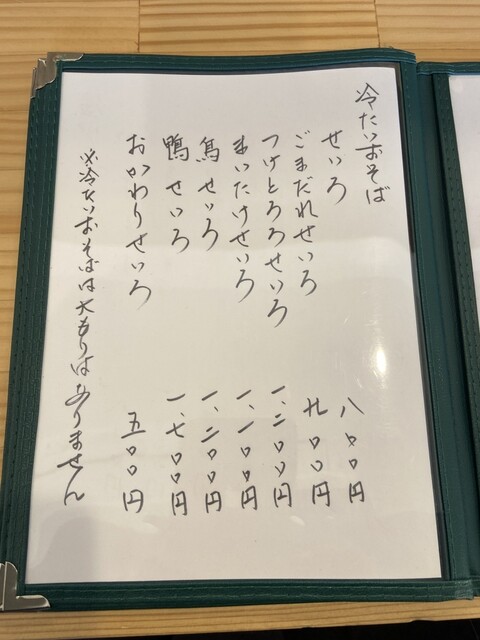 冷たいおそば
せいろ 八〇〇円
ごまだれせいろ 九〇〇円
つけとろろせいろ 一、二〇〇円
まいたけせいろ 一、一〇〇円
鳥せいろ 一、二〇〇円
鴨せいろ 一、七〇〇円
おかわりせいろ 五〇〇円
※冷たいおそばは大もりはありません